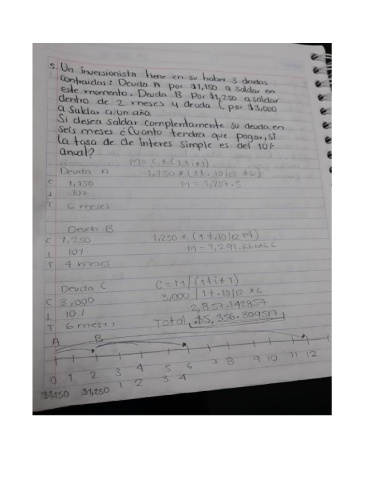 5. Un inversionista tiene en su haber 3 deudas
contraidas: Deuda A por $1,150 a saldar en
este momento. Deuda B Por $1,250 a saldar
dentro de 2 meses y deuda C por $3,000
a Saldar a un año
Si desea saldar completamente su deuda en
seis meses ¿Cuanto tendra que pagar, si
la tasa de de interes simple es del 10%
anual?
M= C*(1+i*t)
Deuda A
C 1,150
I 10%
T 6 meses
Deuda B
C 1,250
I 10%
T 4 meses
Deuda C C=M/(1+i*t)
C 3,000 3,000 1+.10/12 *6
I 10% 2,857.142857
T 6 meses Total $5,356.309517
A B
0 1 2 3 4 5 6 7 8 9 10 11 12
$1,150 $1,250 1 2 3 4